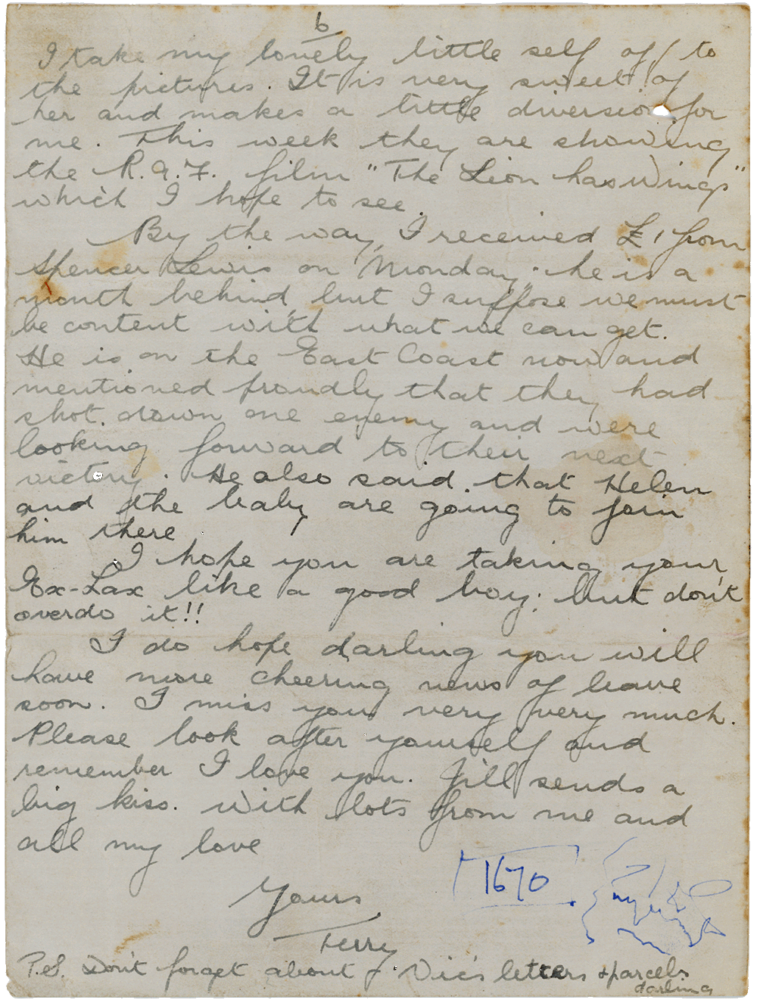 6
I take my lovely little self off to
the pictures. It is very sweet of
her and makes a little diversion for
me. This week they are showing
the R.A.F. film "The Lion has Wings"
which I hope to see.
By the way, I received £1 from
Spencer Lewis on Monday; he is a
month behind, but I suppose we must
be content with what we can get.
He is on the East Coast now and
mentioned proudly that they had
shot down one enemy and were
looking forward to their next
victory. He also said that Helen
and the baby are going to join
him there
I hope you are taking your
Ex-Lax like a good boy; but don't
overdo it!!
I do hope darling you will
have more cheering news of leave
soon. I miss you very very much.
Please look after yourself and
remember I love you. Jill sends a
big kiss. With lots from me and
all my love
Yours
Terry
1670
P.S. Don't forget about Vic's letters & parcels
darling